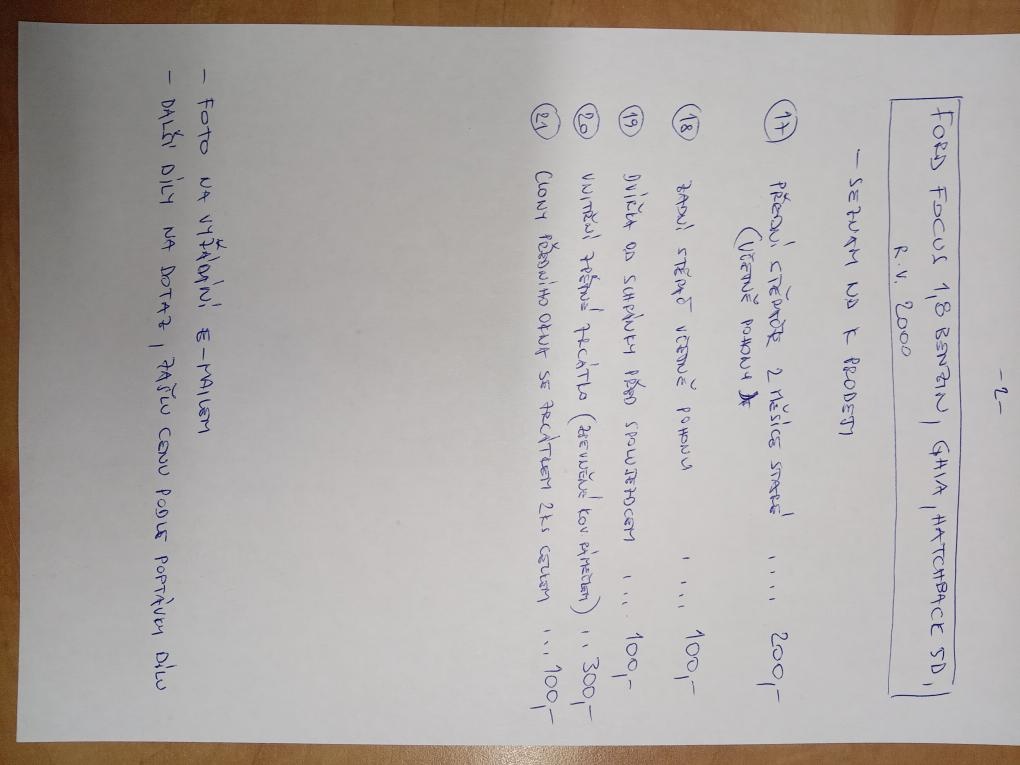 -2-
FORD FOCUS 1,8 BENZIN, GHIA, HATCHBACK 5D,
R.V. 2000
- SEZNAM ND K PRODEJI
17 PŘEDNÍ STĚRAČE 2 MĚSÍCE STARÉ .... 200,-
(VČETNĚ POHONU)
18 ZADNÍ STĚRAČ VČETNĚ POHONU .... 100,-
19 DVÍŘKA OD SCHRÁNKY PŘED SPOLUJEZDCEM .... 100,-
20 VNITŘNÍ ZPĚTNÉ ZRCÁTKO (ZEVNĚNÉ KOV. RÁMEČKEM) .. 300,-
21 CLONY PŘEDNÍHO OKNA SE ZRCÁTKEM 2KS CELKEM ... 100,-
- FOTO NA VYŽÁDÁNÍ E-MAILEM
- DALŠÍ DÍLY NA DOTAZ, ZAŠLU CENU PODLE POPTÁVKY DÍLU